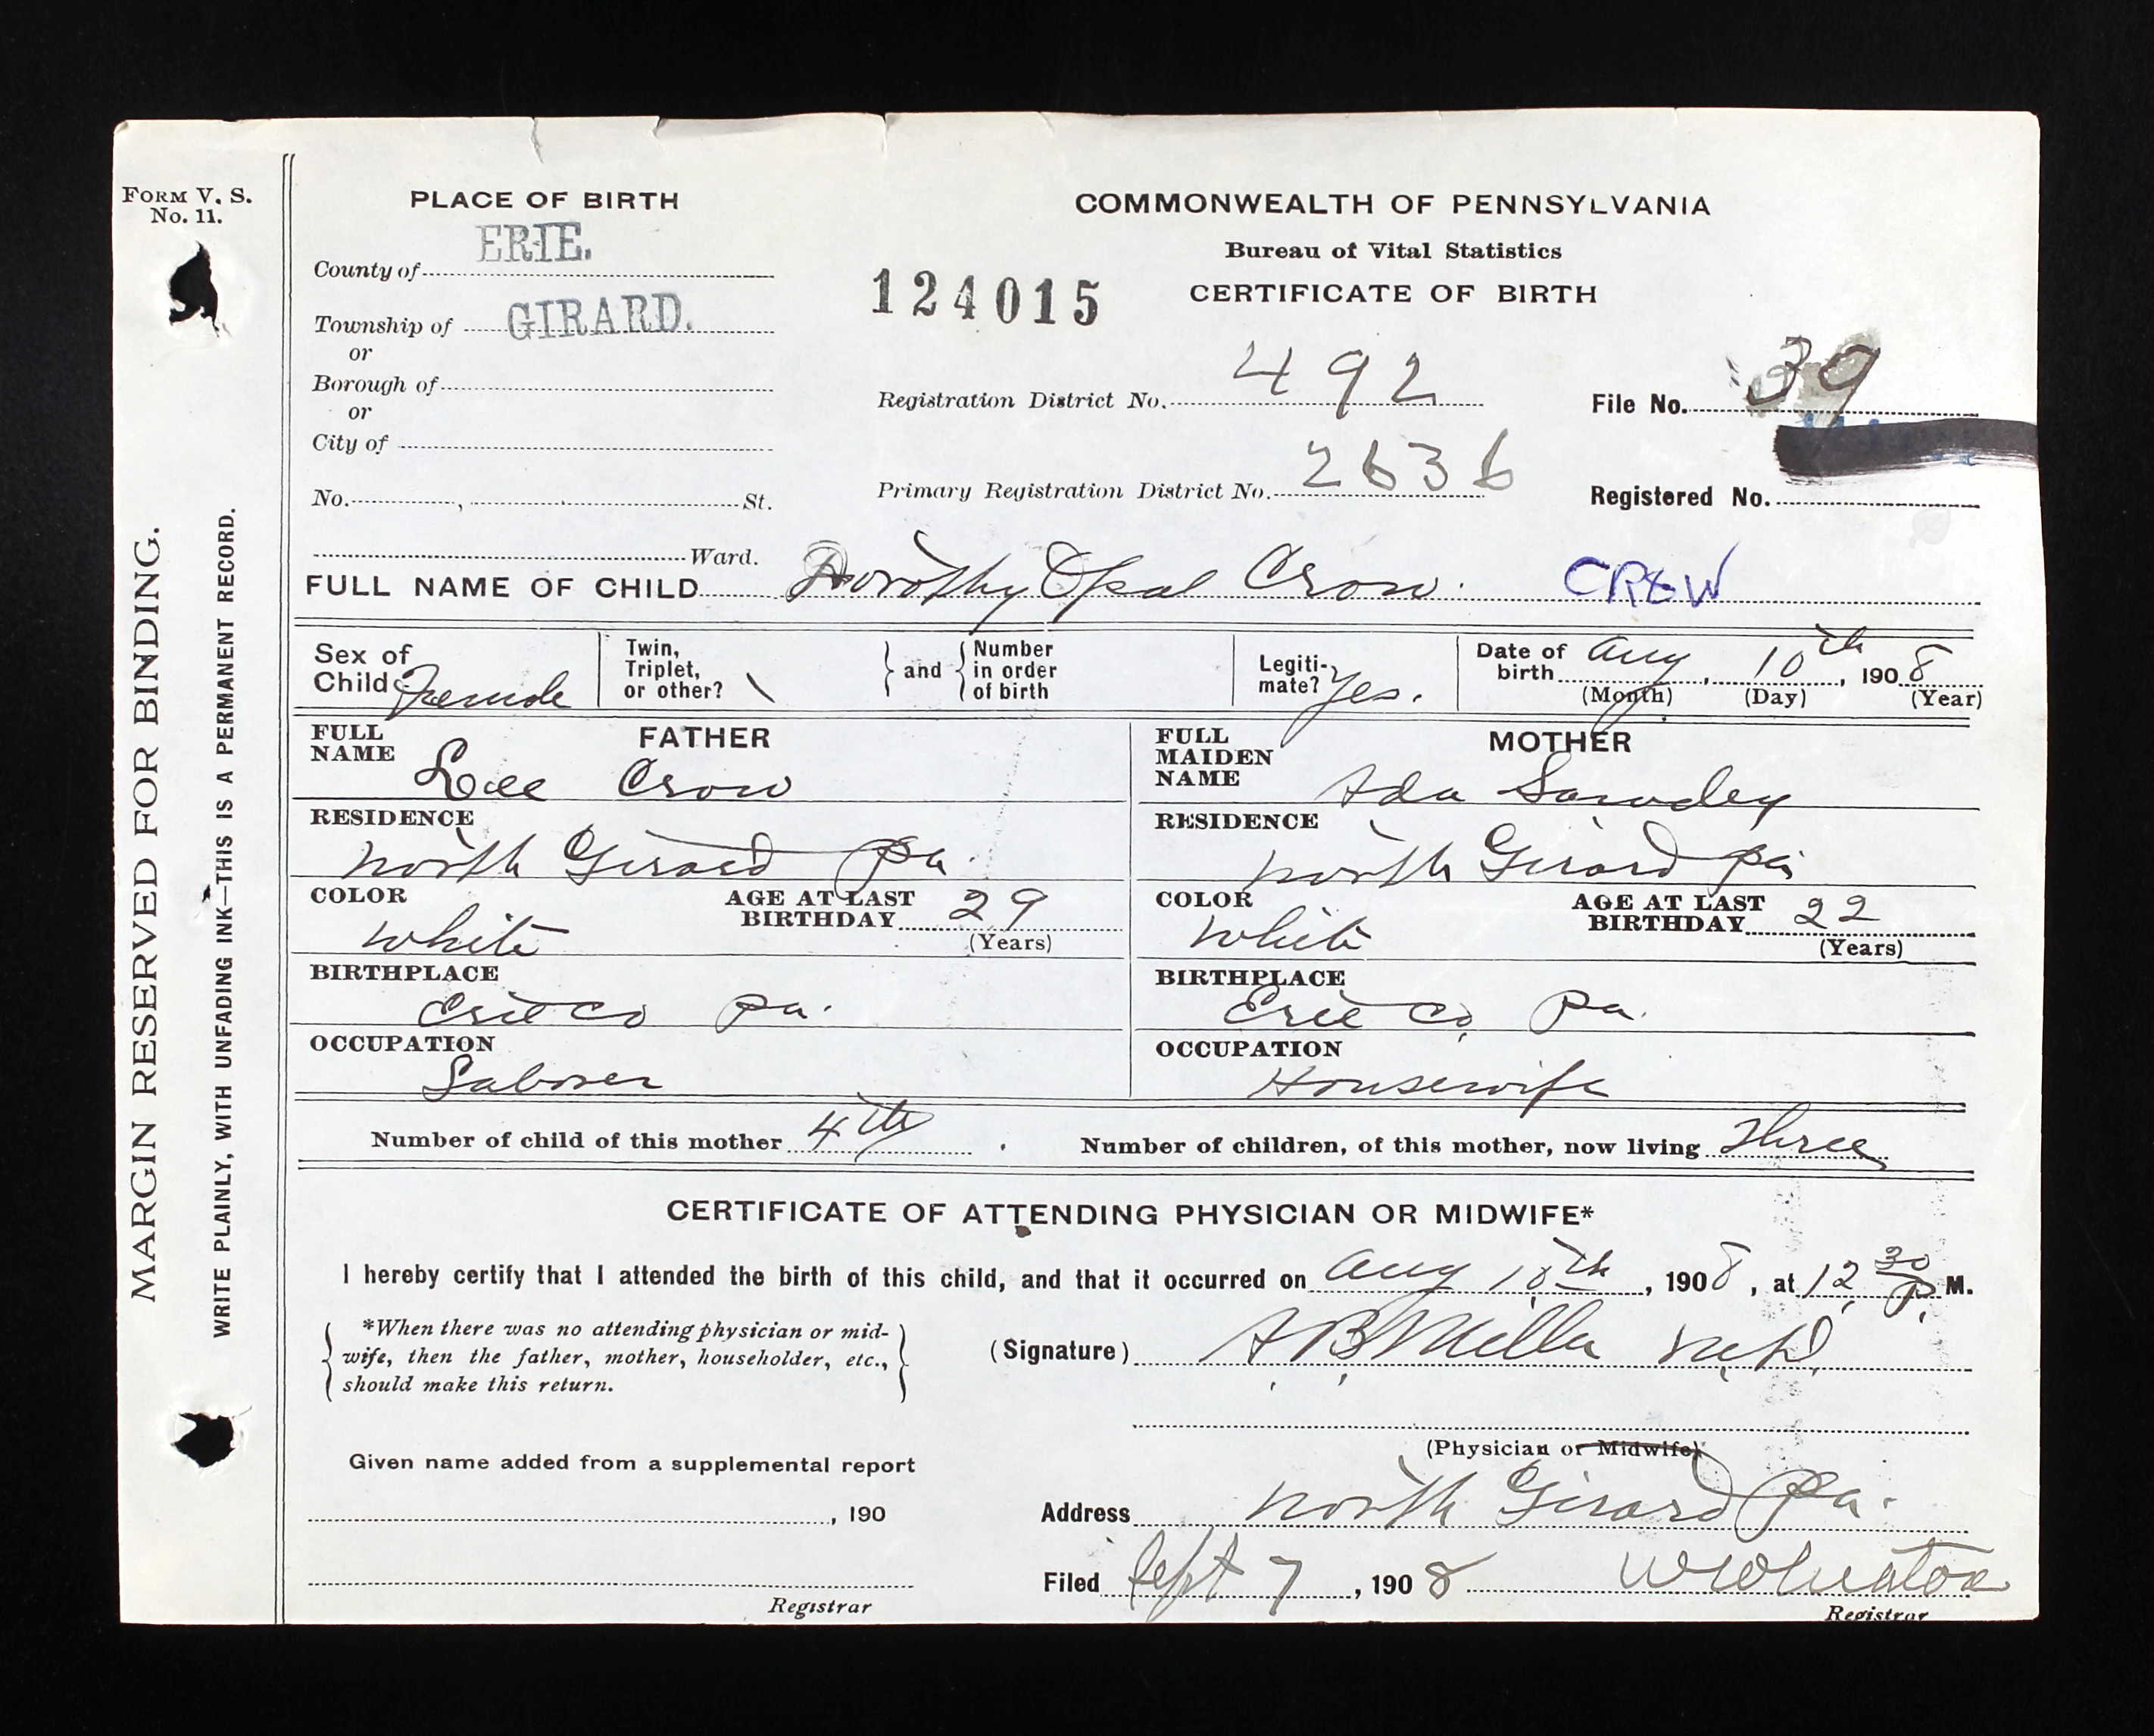 FORM V. S.
No. 11.
MARGIN RESERVED FOR BINDING.
WRITE PLAINLY, WITH UNFADING INK—THIS IS A PERMANENT RECORD.
PLACE OF BIRTH
County of ERIE.
Township of GIRARD.
or
Borough of
or
City of
No. , St.
Ward.
124015
COMMONWEALTH OF PENNSYLVANIA
Bureau of Vital Statistics
CERTIFICATE OF BIRTH
Registration District No. 492
File No. 39
Primary Registration District No. 2636
Registered No.
FULL NAME OF CHILD Dorothy Opal Crow. CREW
Sex of Child Female
Twin, Triplet, or other? \
and Number in order of birth
Legiti-mate? Yes.
Date of birth Aug, 10th, 1908
(Month) (Day) (Year)
FATHER
FULL NAME Lee Crow
RESIDENCE
North Girard Pa.
COLOR White
AGE AT LAST BIRTHDAY 29
(Years)
BIRTHPLACE
Erie Co Pa.
OCCUPATION
Laborer
MOTHER
FULL MAIDEN NAME Ada Sawdey
RESIDENCE
North Girard Pa
COLOR White
AGE AT LAST BIRTHDAY 22
(Years)
BIRTHPLACE
Erie Co, Pa.
OCCUPATION
Housewife
Number of child of this mother 4th. Number of children, of this mother, now living Three
CERTIFICATE OF ATTENDING PHYSICIAN OR MIDWIFE*
I hereby certify that I attended the birth of this child, and that it occurred on Aug 10th, 1908, at 12 30 P. M.
*When there was no attending physician or mid-
wife, then the father, mother, householder, etc.,
should make this return.
(Signature) A B Miller M.D.
(Physician or Midwife)
Given name added from a supplemental report
, 190
Registrar
Address North Girard Pa.
Filed Sept 7, 1908
Registrar